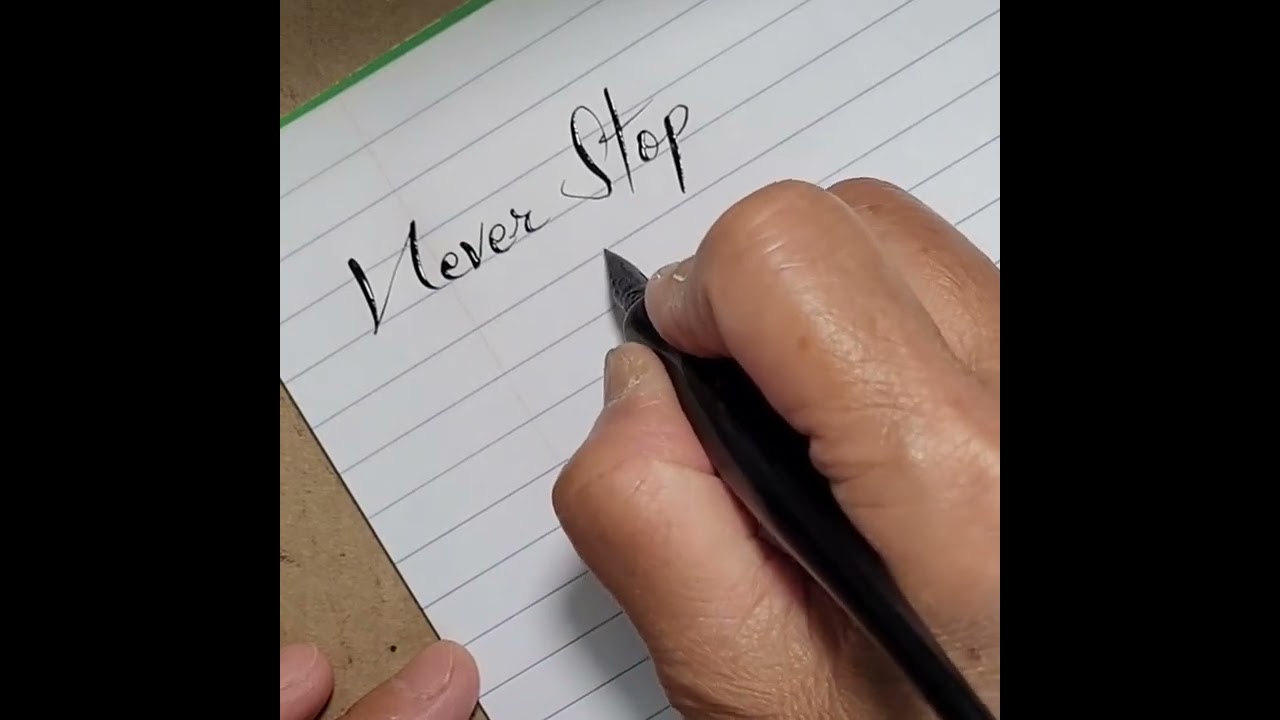 Never Stop